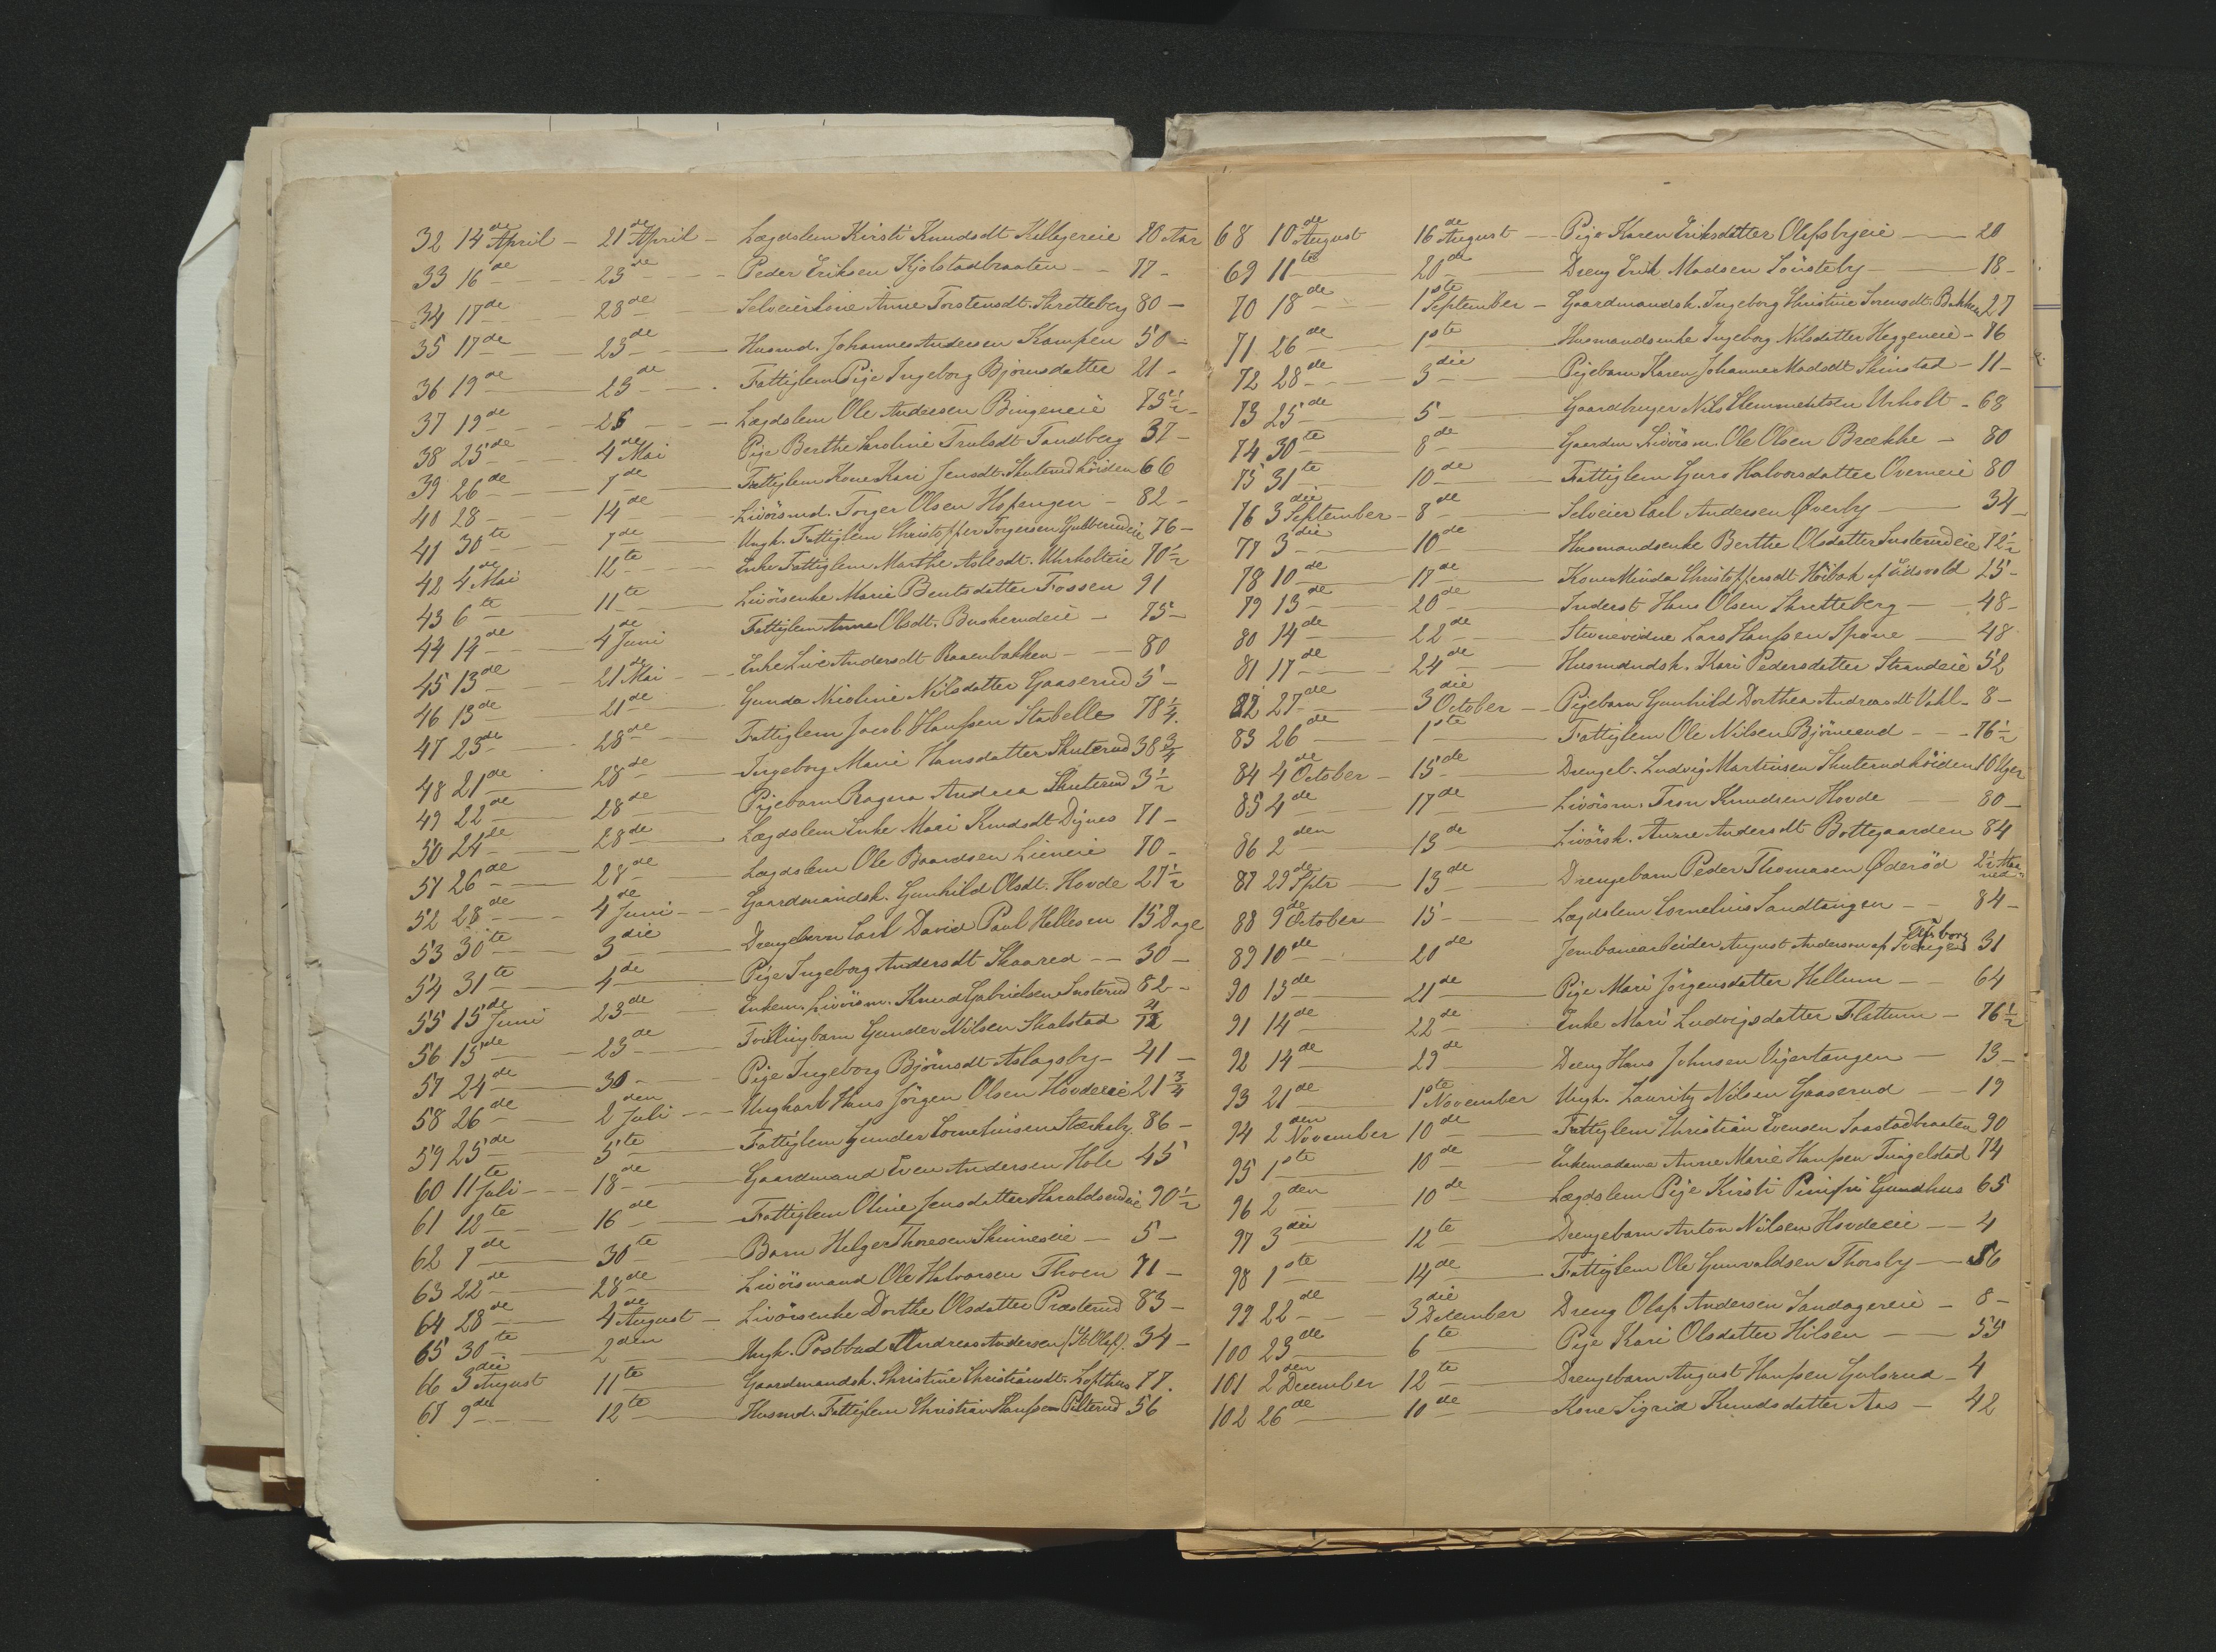 32 14de April - 21de April - Lægdslem Kirsti Knudsdt Kellagereie 80 Aar
33 16de - 23de - Peder Eriksen Kjølstadbraaten - 77 -
34 17de - 28de - Selveierkone Anne Torstensdt. Skretteberg 80 -
35 17de - 23de - Husmd. Johannes Andersen Kampen 50 -
36 19de - 23de - Fattiglem Pige Ingeborg Bjørnsdatter 21 -
37 19de - 26 - Lægdslem Ole Andersen Bingeneie 73 1/2 -
38 25de - 4de Mai Pige Berthe Karoline Trulsdt Tandberg 37 -
39 26de - 7de - Fattiglem Kone Kari Jensdt. Skuterudhöiden 66
40 28 - 14de - Livörsmd. Torger Olsen Hofsengen - 82 -
41 30te - 7de - Ungk. Fattiglem Christoffer Torgersen Gubberudeie 76 -
42 4de Mai 12te - Enke Fattiglem Marthe Aslesdt. Uhrholteie 70 1/2
43 6te - 11te - Livörsenke Marie Bentsdatter Fossen 91
44 14de - 4de Juni Fattiglem Anne Olsdt. Buskerudeie - 75 -
45 13de - 21de Mai - Enke Live Andersdt Raaenbakken - 80
46 13de - 21de - Gunda Nicoline Nilsdatter Gaaserud 5 -
47 23de - 28de - Fattiglem Jacob Hansen Stabelles 78 1/4
48 21de - 28de - Ingeborg Marie Hansdatter Skuterud 38 3/4
49 22de - 28de - Pigebarn Ragna Andrea Skuterud 3 1/2
50 24de - 28de - Lægdslem Enke Mari Knudsdt Dignes 71 -
51 26de - 28de - Lægdslem Ole Baardsen Lieneie 70 -
52 28de - 4de Juni - Gaardmandsk. Gunhild Olsdt. Hovde 27 1/2
53 30te - 3die - Drengebarn Carl David Paul Hellesen 15 Dage
54 31te - 4de - Pige Ingeborg Andersdt Skaared - 30 -
55 15de Juni 23de - Enkem. Livörsm. Knud Gabrielsen Susterud 82 -
56 15de - 23de - Tvillingbarn Gunder Nilsen Skalstad 4/12
57 24de - 30 - Pige Ingeborg Bjørnsdt. Aslagsby - 41 -
58 26de - 2den Juli - Ungkarl Hans Jörgen Olsen Hovdeeie 21 3/4
59 25de - 5te - Fattiglem Gunder Corneliusen Stærkeby. 86 -
60 11te Juli - 18de - Gaardmand Even Andersen Hole 45
61 12te - 16de - Fattiglem Oline Jensdatter Haraldsrudeie 90 1/2
62 7de - 30te - Barn Helge Thoresen Skinneseie - 5 -
63 22de - 28de - Livörsmand Ole Halvorsen Thoen 71 -
64 28de - 4de August - Livörsenke Dorthe Olsdatter Præsterud 83 -
65 30te - 2den - Ungk. Postbud Andreas Andersen (St Olaf). 34 -
66 3die August 11te - Gaardmandsk. Christine Christiansdt. Lofthus 77.
67 9de - 12te - Husmd. Fattiglem Christian Hansen Pilterud 56
68 10de August 16de August - Pige Karen Eriksdatter Olafsbyeie - 20
69 11te - 20de - Dreng Erik Madsen Sönsteby - 18 -
70 18de - 1ste September - Gaardmandsk. Ingeborg Christine Sorensdt. Bakken 27
71 26de - 1ste - Husmandsenke Ingeborg Nilsdatter Heggeneie - 76
72 28de - 3die - Pigebarn Karen Johanne Madsdt Skinstad - 11 -
73 25de - 5 - Gaardbruger Nils Clemmentsen Urholt - 68
74 30te - 8de - Gaardm. Livörsm. Ole Olsen Brække - 80
75 31te - 10de - Fattiglem Guro Halvorsdatter Overneie 80
76 3die September - 8de - Selveier Carl Andersen Øverby - 34 -
77 3die - 10de - Husmandsenke Berthe Olsdatter Susterudeie 72 1/2
78 10de - 17de - Kone Minda Christoffersdt Höibak af Eidsvold 25 -
79 13de - 20de - Inderst Hans Olsen Skretteberg - 48 -
80 14de - 22de - Lars Hansen Spone - 48
81 17de - 24de - Husmandsk. Kari Pedersdatter Strandeie 52
82 27de - 3die October - Pigebarn Gunhild Dorthea Andreasdt Vahl - 8 -
83 26de - 1ste - Fattiglem Ole Nilsen Björnerud - 76 1/2
84 4de October - 15de - Drengeb. Ludvig Martinsen Skuterudhöiden 10 Uger
85 4de - 17de - Livörsm. Tron Knudsen Hovde 80 -
86 2den - 13de - Livörsk. Anne Andersdt Bottegaarden 84
87 29de Sptr - 13de - Drengebarn Peder Thomasen Øderöd 2 1/2 Maaned
88 9de October 15 - Lægdslem Cornelius Sandtangen - 84 -
89 10de - 20de Jernbanearbeider August Anderson af Sverige 31
90 13de - 21de - Pige Mari Jörgensdatter Hellum - 64
91 14de - 22de - Enke Mari Ludvigsdatter Flattum - 76 1/2
92 14de - 29de - Dreng Hans Johnsen Vigertangen - 13 -
93 21de - 1ste November Ungk. Lauritz Nilsen Gaaserud - 19
94 2den November 10de - Fattiglem Christian Evensen Saastadbraaten 90
95 1ste - 10de - Enkemadame Anne Marie Hansen Tingelstad 74
96 2den - 10de - Lægdslem Pige Kirsti Gundhus 65
97 3die - 12te - Drengebarn Anton Nilsen Hovdeeie - 4
98 1ste - 14de - Fattiglem Ole Gunvaldsen Thorsby - 56
99 22de - 3die Detember Dreng Olaf Andersen Sandagereie - 8 -
100 23de - 6te - Pige Kari Olsdatter Hilsen - 55
101 2den December 12te - Drengebarn August Hansen Gulsrud - 4
102 26de - 10de - Kone Sigrid Knudsdatter Aas - 42